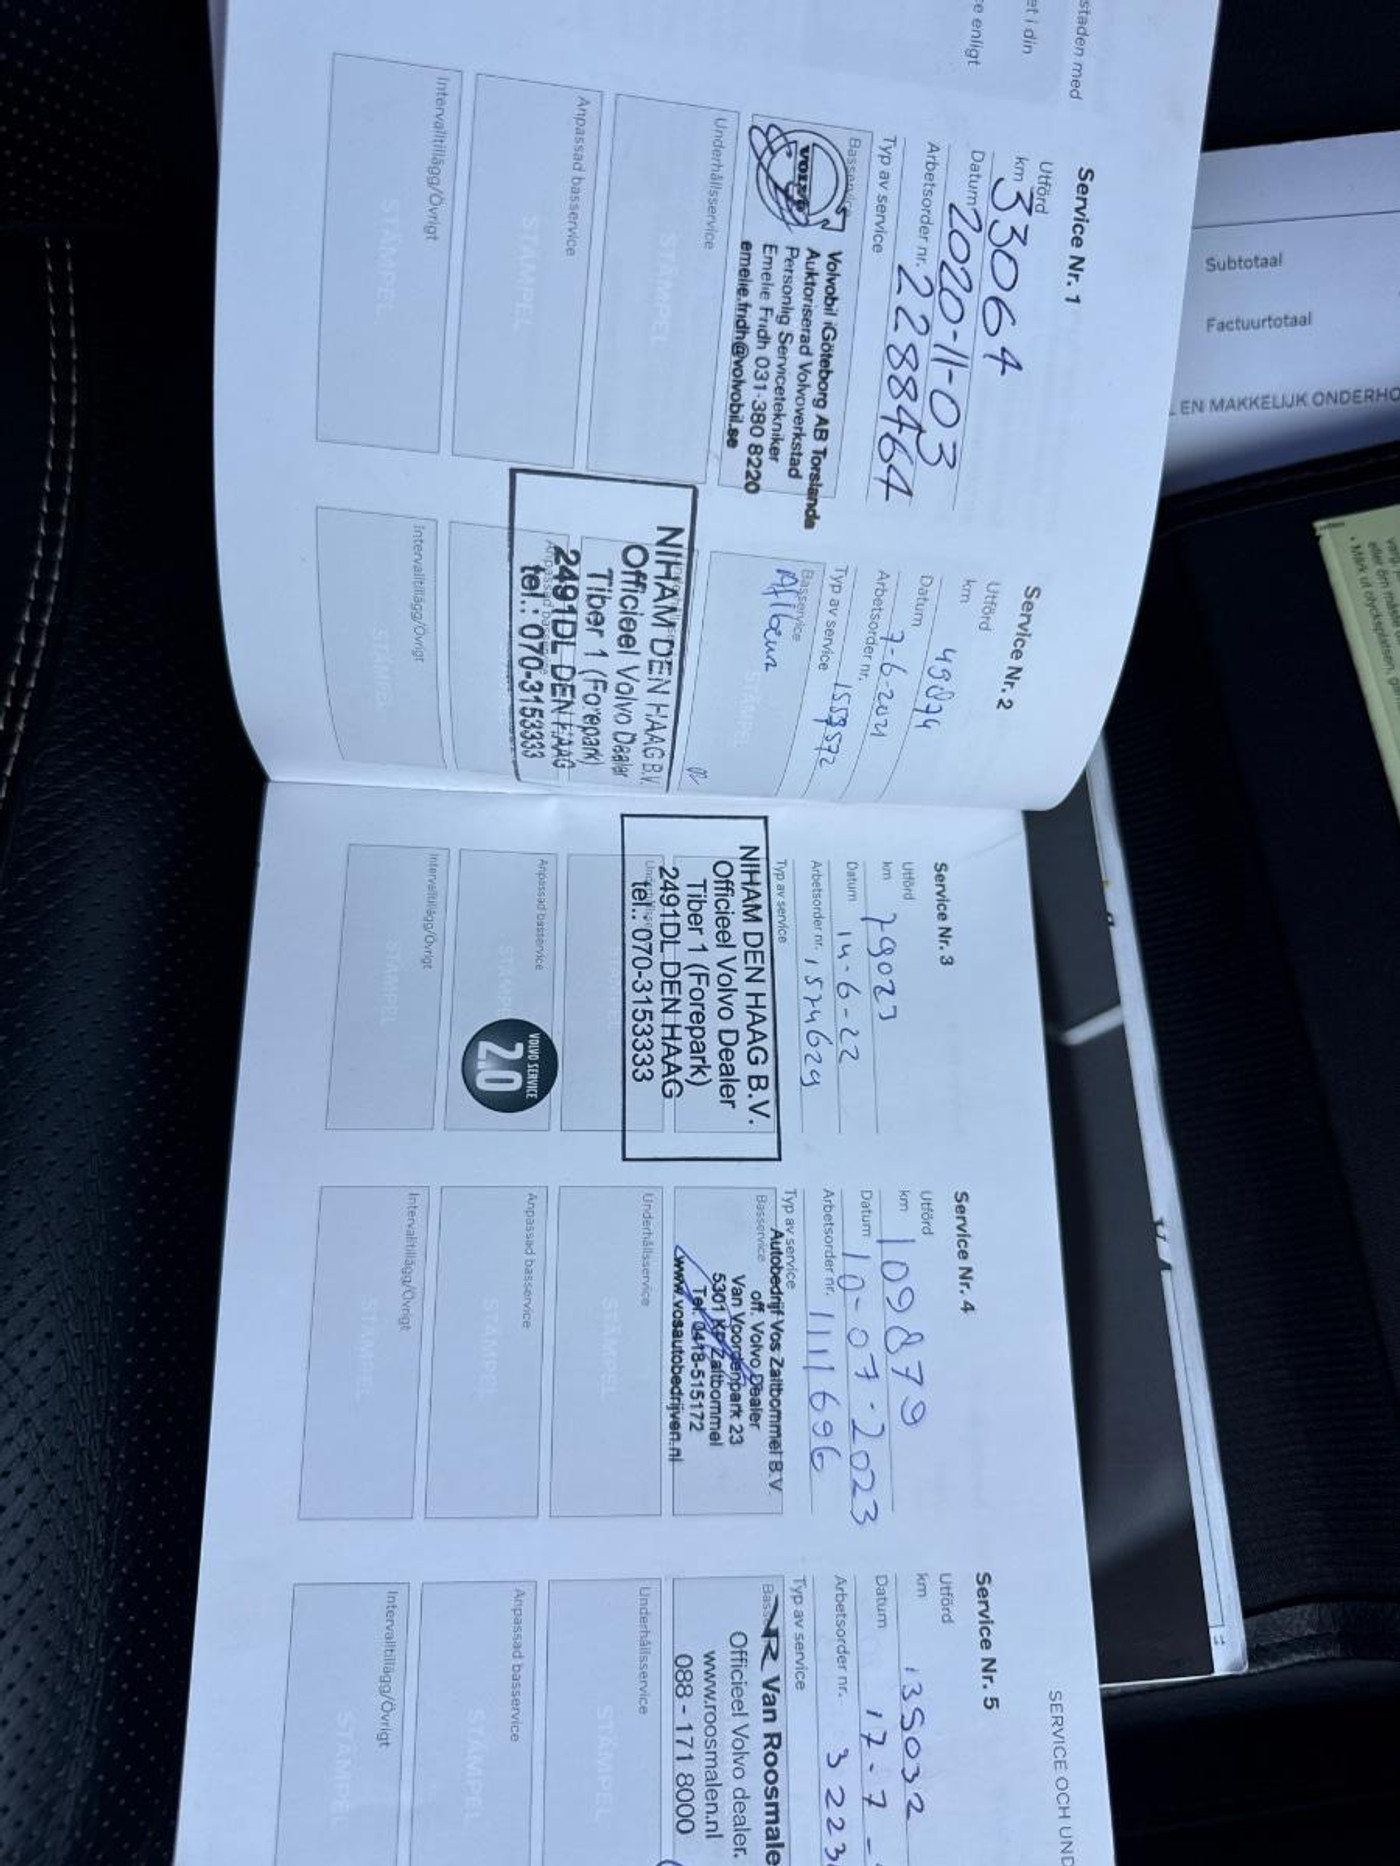 staden med
et i din
e enligt
Service Nr. 1
Utförd
km 33064
Datum 2020-11-03
Arbetsorder nr. 2288464
Typ av service
Basservice
VOLVO
Volvobil iGöteborg AB Torslanda
Auktoriserad Volvoverkstad
Personlig Servicetekniker
Emelie Fridh 031-380 8220
emelie.fridh@volvobil.se
Underhållsservice
STÄMPEL
Anpassad basservice
STÄMPEL
Intervalltillägg/Övrigt
STÄMPEL
Service Nr. 2
Utförd
km 49874
Datum 7-6-2021
Arbetsorder nr.
Typ av service
Basservice
STÄMPEL
NIHAM DEN HAAG B.V.
Officieel Volvo Dealer
Tiber 1 (Forepark)
2491DL DEN HAAG
tel.: 070-3153333
Anpassad basservice
Intervalltillägg/Övrigt
STÄMPEL
Service Nr. 3
Utförd
km 79023
Datum 14-6-22
Arbetsorder nr. 1574629
Typ av service
NIHAM DEN HAAG B.V.
Officieel Volvo Dealer
Tiber 1 (Forepark)
2491DL DEN HAAG
tel.: 070-3153333
STÄMPEL
Anpassad basservice
STÄMPEL
VOLVO SERVICE
2.0
Intervalltillägg/Övrigt
STÄMPEL
Service Nr. 4
Utförd
km 109879
Datum 10-07-2023
Arbetsorder nr. 1111696
Typ av service
Basservice
Autobedrijf Vos Zaltbommel B.V.
off. Volvo Dealer
Van Voordenpark 23
5301 KP Zaltbommel
Tel. 0418-515172
www.vosautobedrijven.nl
Underhållsservice
STÄMPEL
Anpassad basservice
STÄMPEL
Intervalltillägg/Övrigt
STÄMPEL
SERVICE OCH UND
Service Nr. 5
Utförd
km 135032
Datum 17-7-
Arbetsorder nr. 3223
Typ av service
Van Roosmale
Officieel Volvo dealer.
www.roosmalen.nl
088 - 171 8000
Underhållsservice
STÄMPEL
Anpassad basservice
STÄMPEL
Intervalltillägg/Övrigt
STÄMPEL
Subtotaal
Factuurtotaal
EN MAKKELIJK ONDERHO